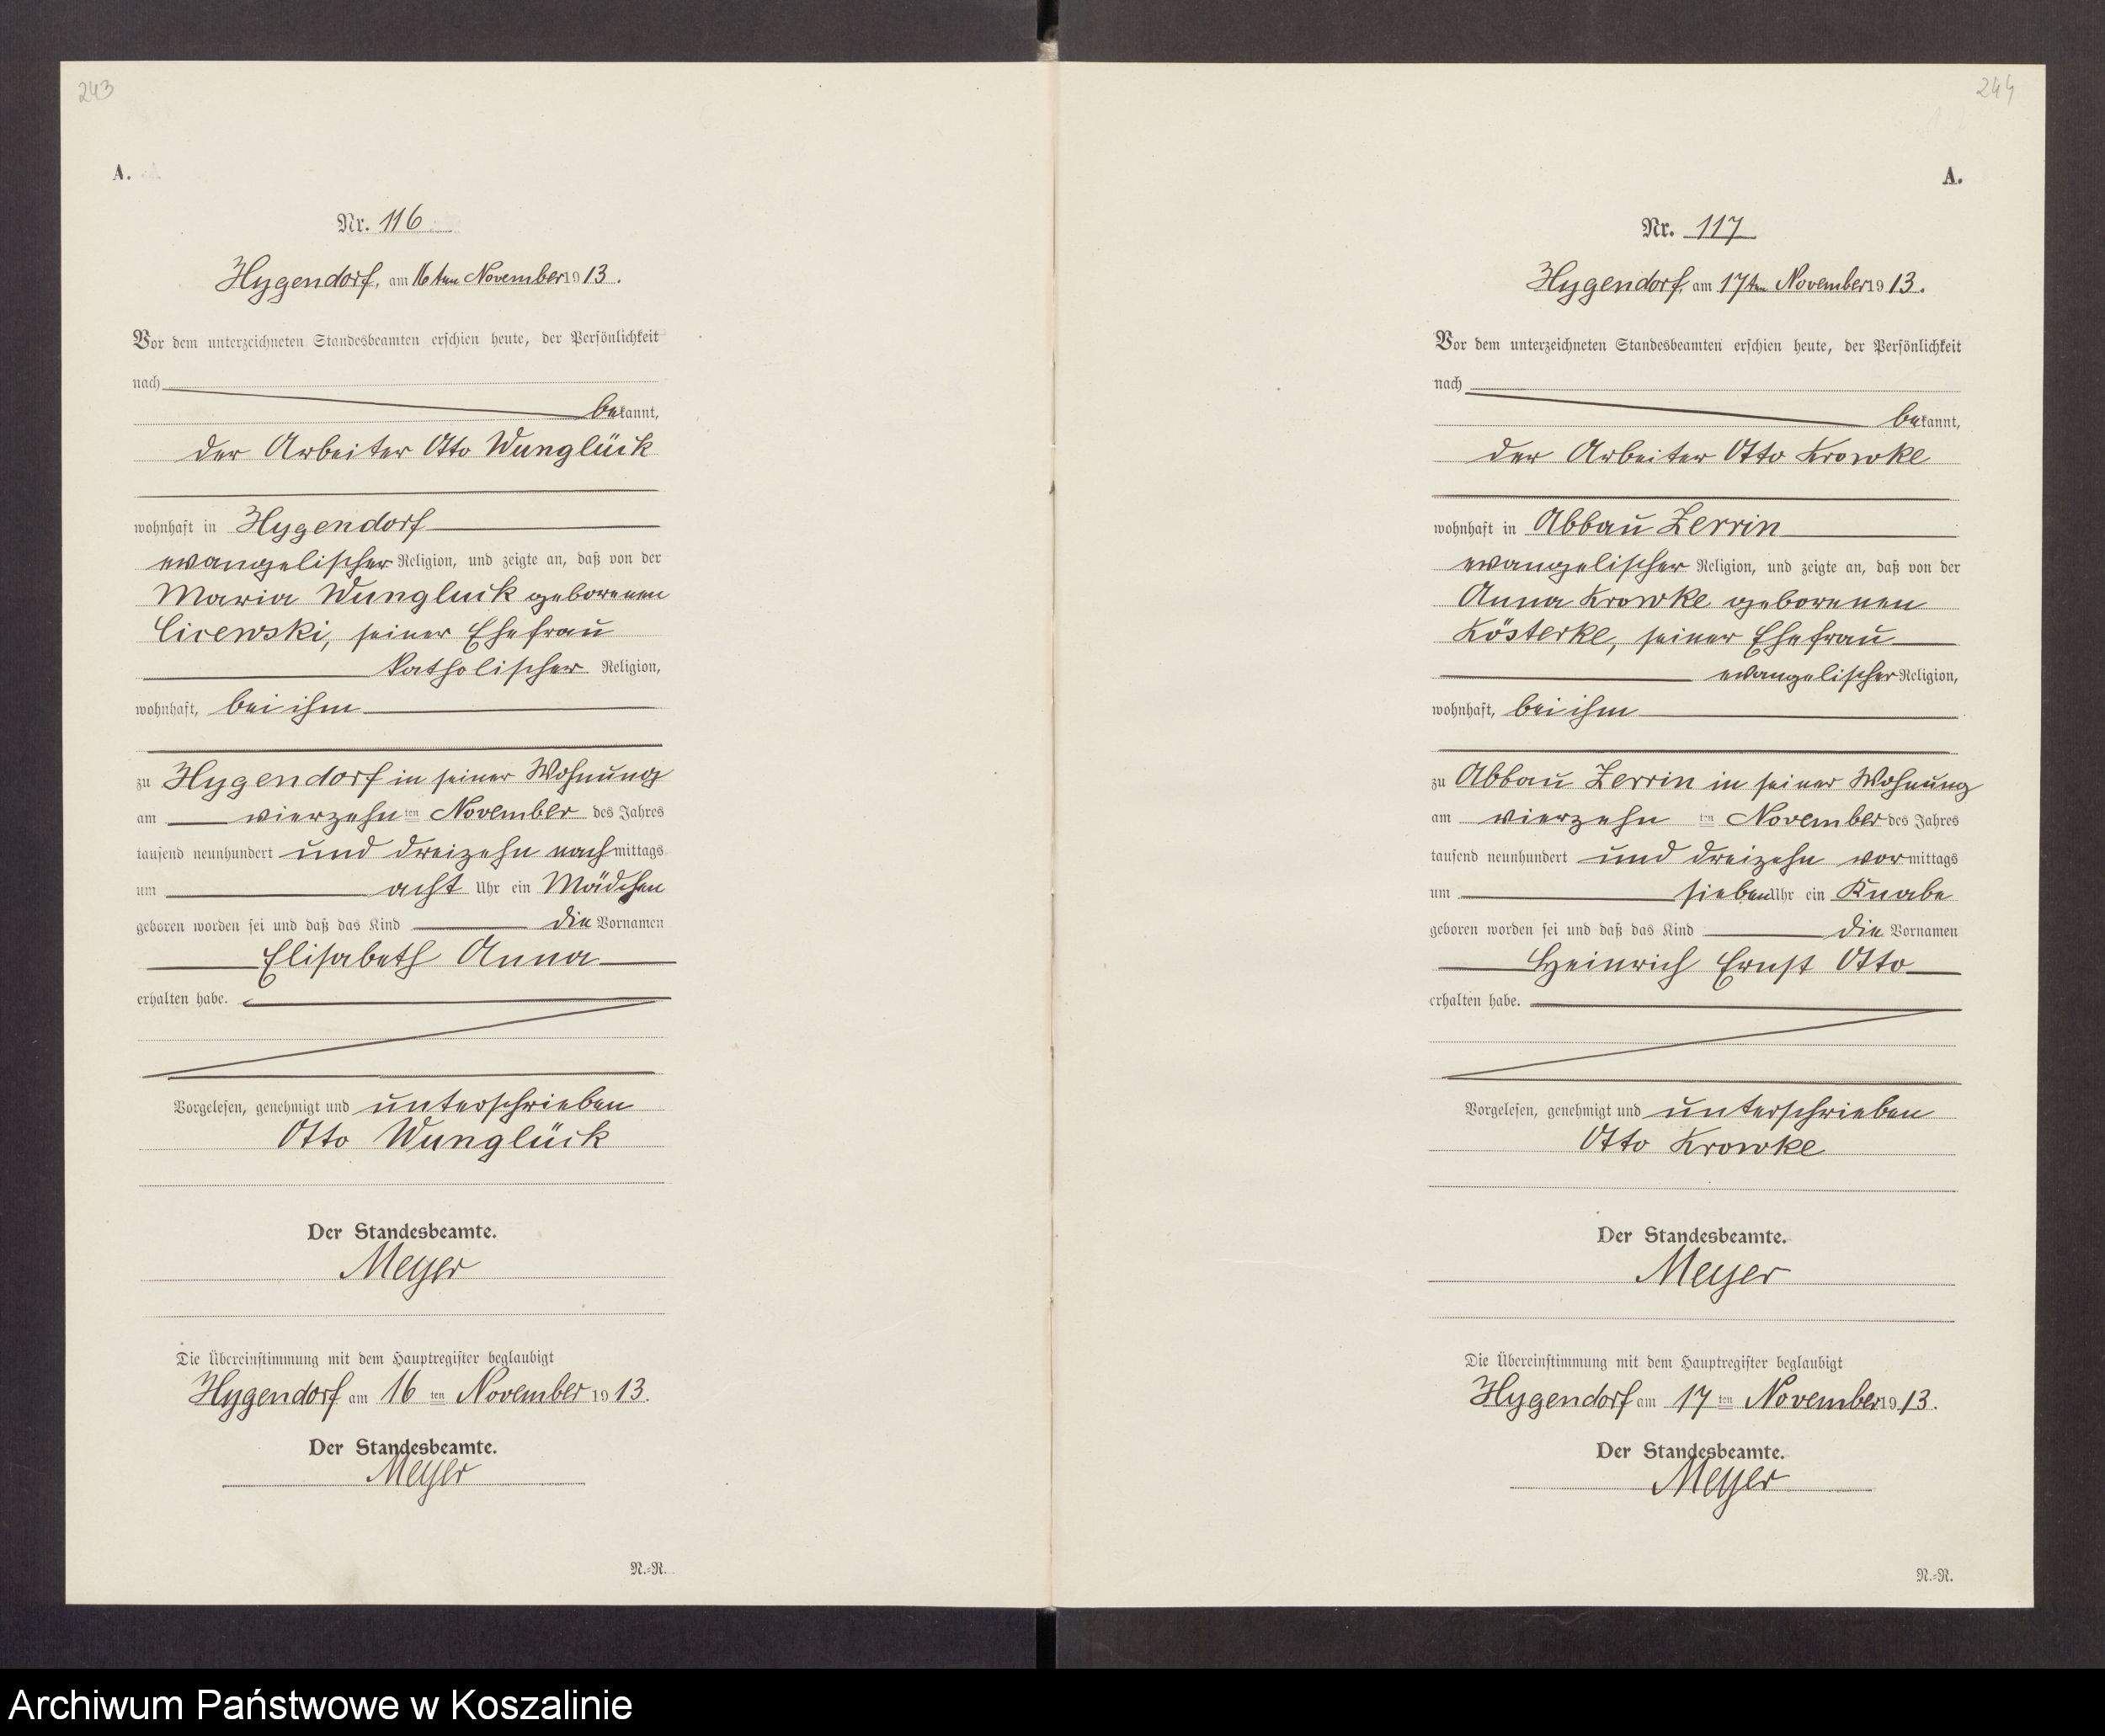 243
A.
Nr. 116
Hygendorf, am 16ten November 1913.
Vor dem unterzeichneten Standesbeamten erschien heute, der Persönlichkeit
nach
bekannt,
der Arbeiter Otto Wunglück
wohnhaft in Hygendorf
evangelischer Religion, und zeigte an, daß von der
Maria Wungluck geborenen
Cicewski, seiner Ehefrau
katholischer Religion,
wohnhaft, bei ihm
zu Hygendorf in seiner Wohnung
am vierzehn ten November des Jahres
tausend neunhundert und dreizehn nachmittags
um acht Uhr ein Mädchen
geboren worden sei und daß das Kind die Vornamen
Elisabeth Anna
erhalten habe.
Vorgelesen, genehmigt und unterschrieben
Otto Wunglück
Der Standesbeamte.
Meyer
Die Übereinstimmung mit dem Hauptregister beglaubigt
Hygendorf am 16 ten November 1913.
Der Standesbeamte.
Meyer
N.=R.
244
A.
Nr. 117
Hygendorf, am 17ten November 1913.
Vor dem unterzeichneten Standesbeamten erschien heute, der Persönlichkeit
nach
bekannt,
der Arbeiter Otto Krowke
wohnhaft in Abbau Zerrin
evangelischer Religion, und zeigte an, daß von der
Anna Krowke geborenen
Kösterke, seiner Ehefrau
evangelischer Religion,
wohnhaft, bei ihm
zu Abbau Zerrin in seiner Wohnung
am vierzehn ten November des Jahres
tausend neunhundert und dreizehn vormittags
um sieben Uhr ein Knabe
geboren worden sei und daß das Kind die Vornamen
Heinrich Ernst Otto
erhalten habe.
Vorgelesen, genehmigt und unterschrieben
Otto Krowke
Der Standesbeamte.
Meyer
Die Übereinstimmung mit dem Hauptregister beglaubigt
Hygendorf am 17 ten November 1913.
Der Standesbeamte.
Meyer
N.=R.
Archiwum Państwowe w Koszalinie